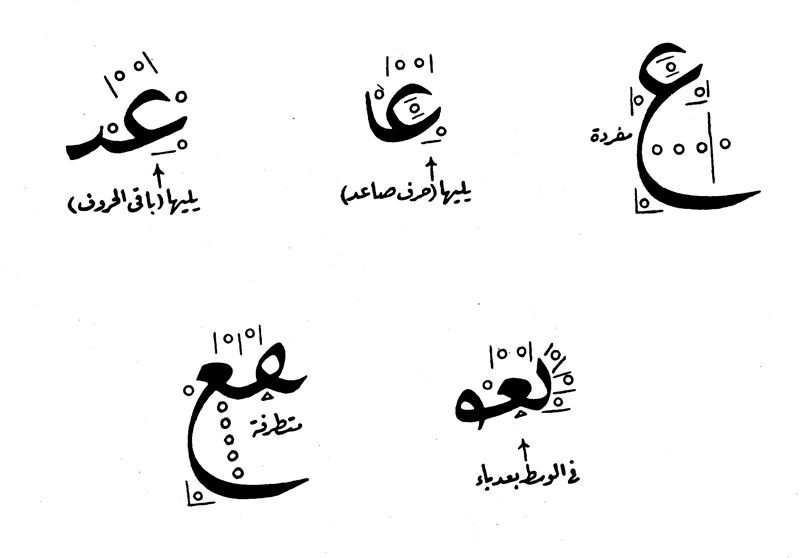 ع
مفردة
عا
يليها (حرف صاعد)
عد
يليها (باقى الحروف)
لعو
فى الوسط بعد باء
هع
متطرفة